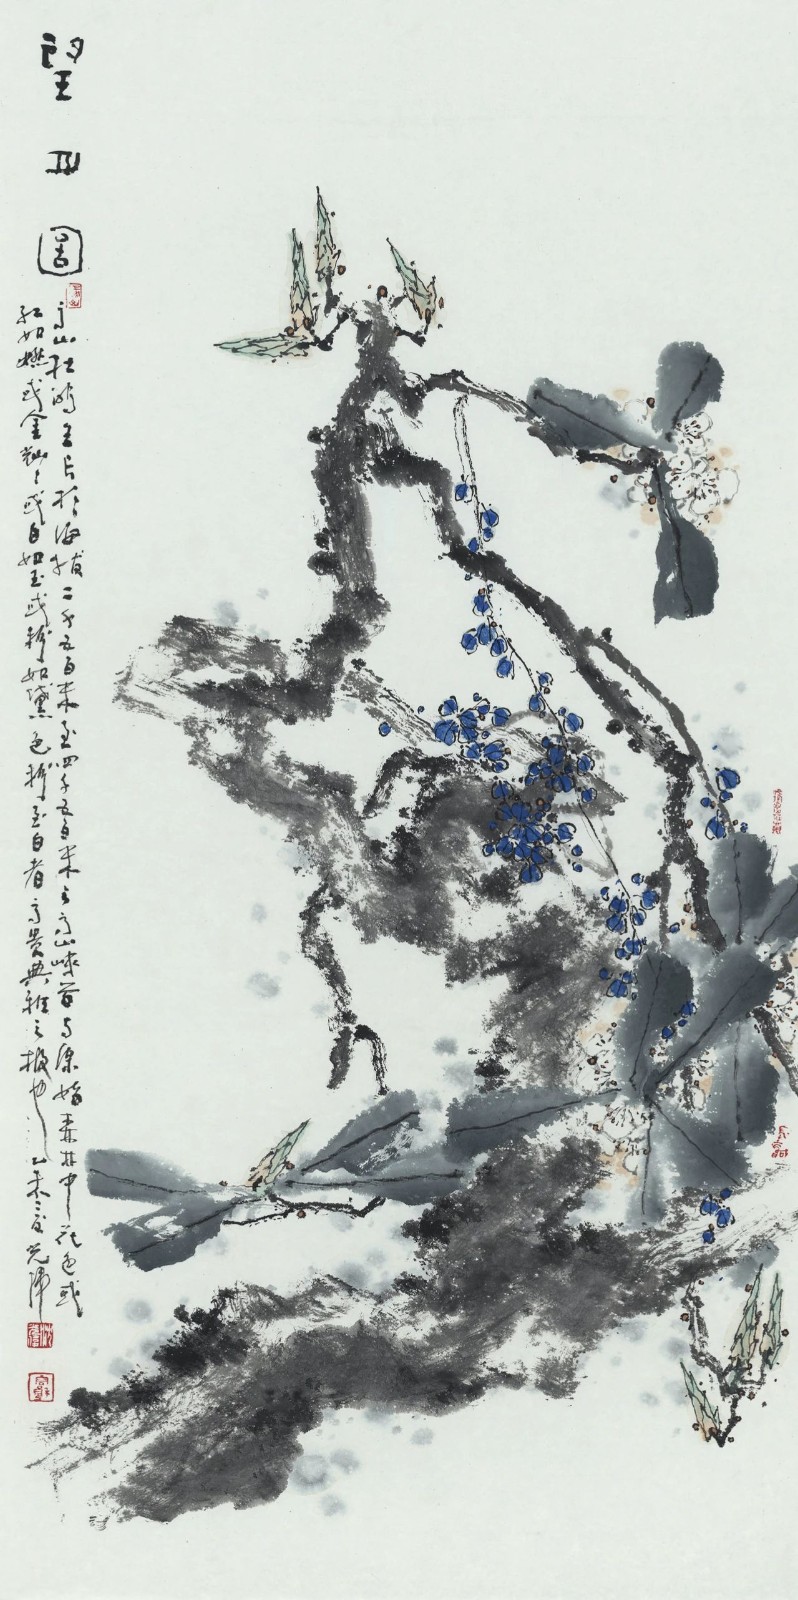 望月圖
高山杜鹃生长於海拔二千五百米至四千五百米之高山峡谷与原始森林中花色或
红如燃或金灿灿或白如玉或粉如黛色粉至白者高贵典雅之极也乙未之夏光